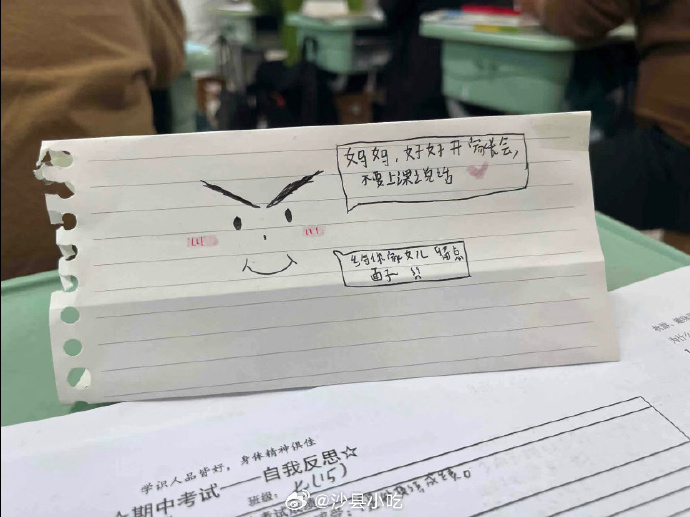 妈妈，好好开家长会，
不要上课说话
给你家女儿留点
面子
学识人品皆好，身体精神俱佳
期中考试——自我反思☆
班级：
@沙县小吃